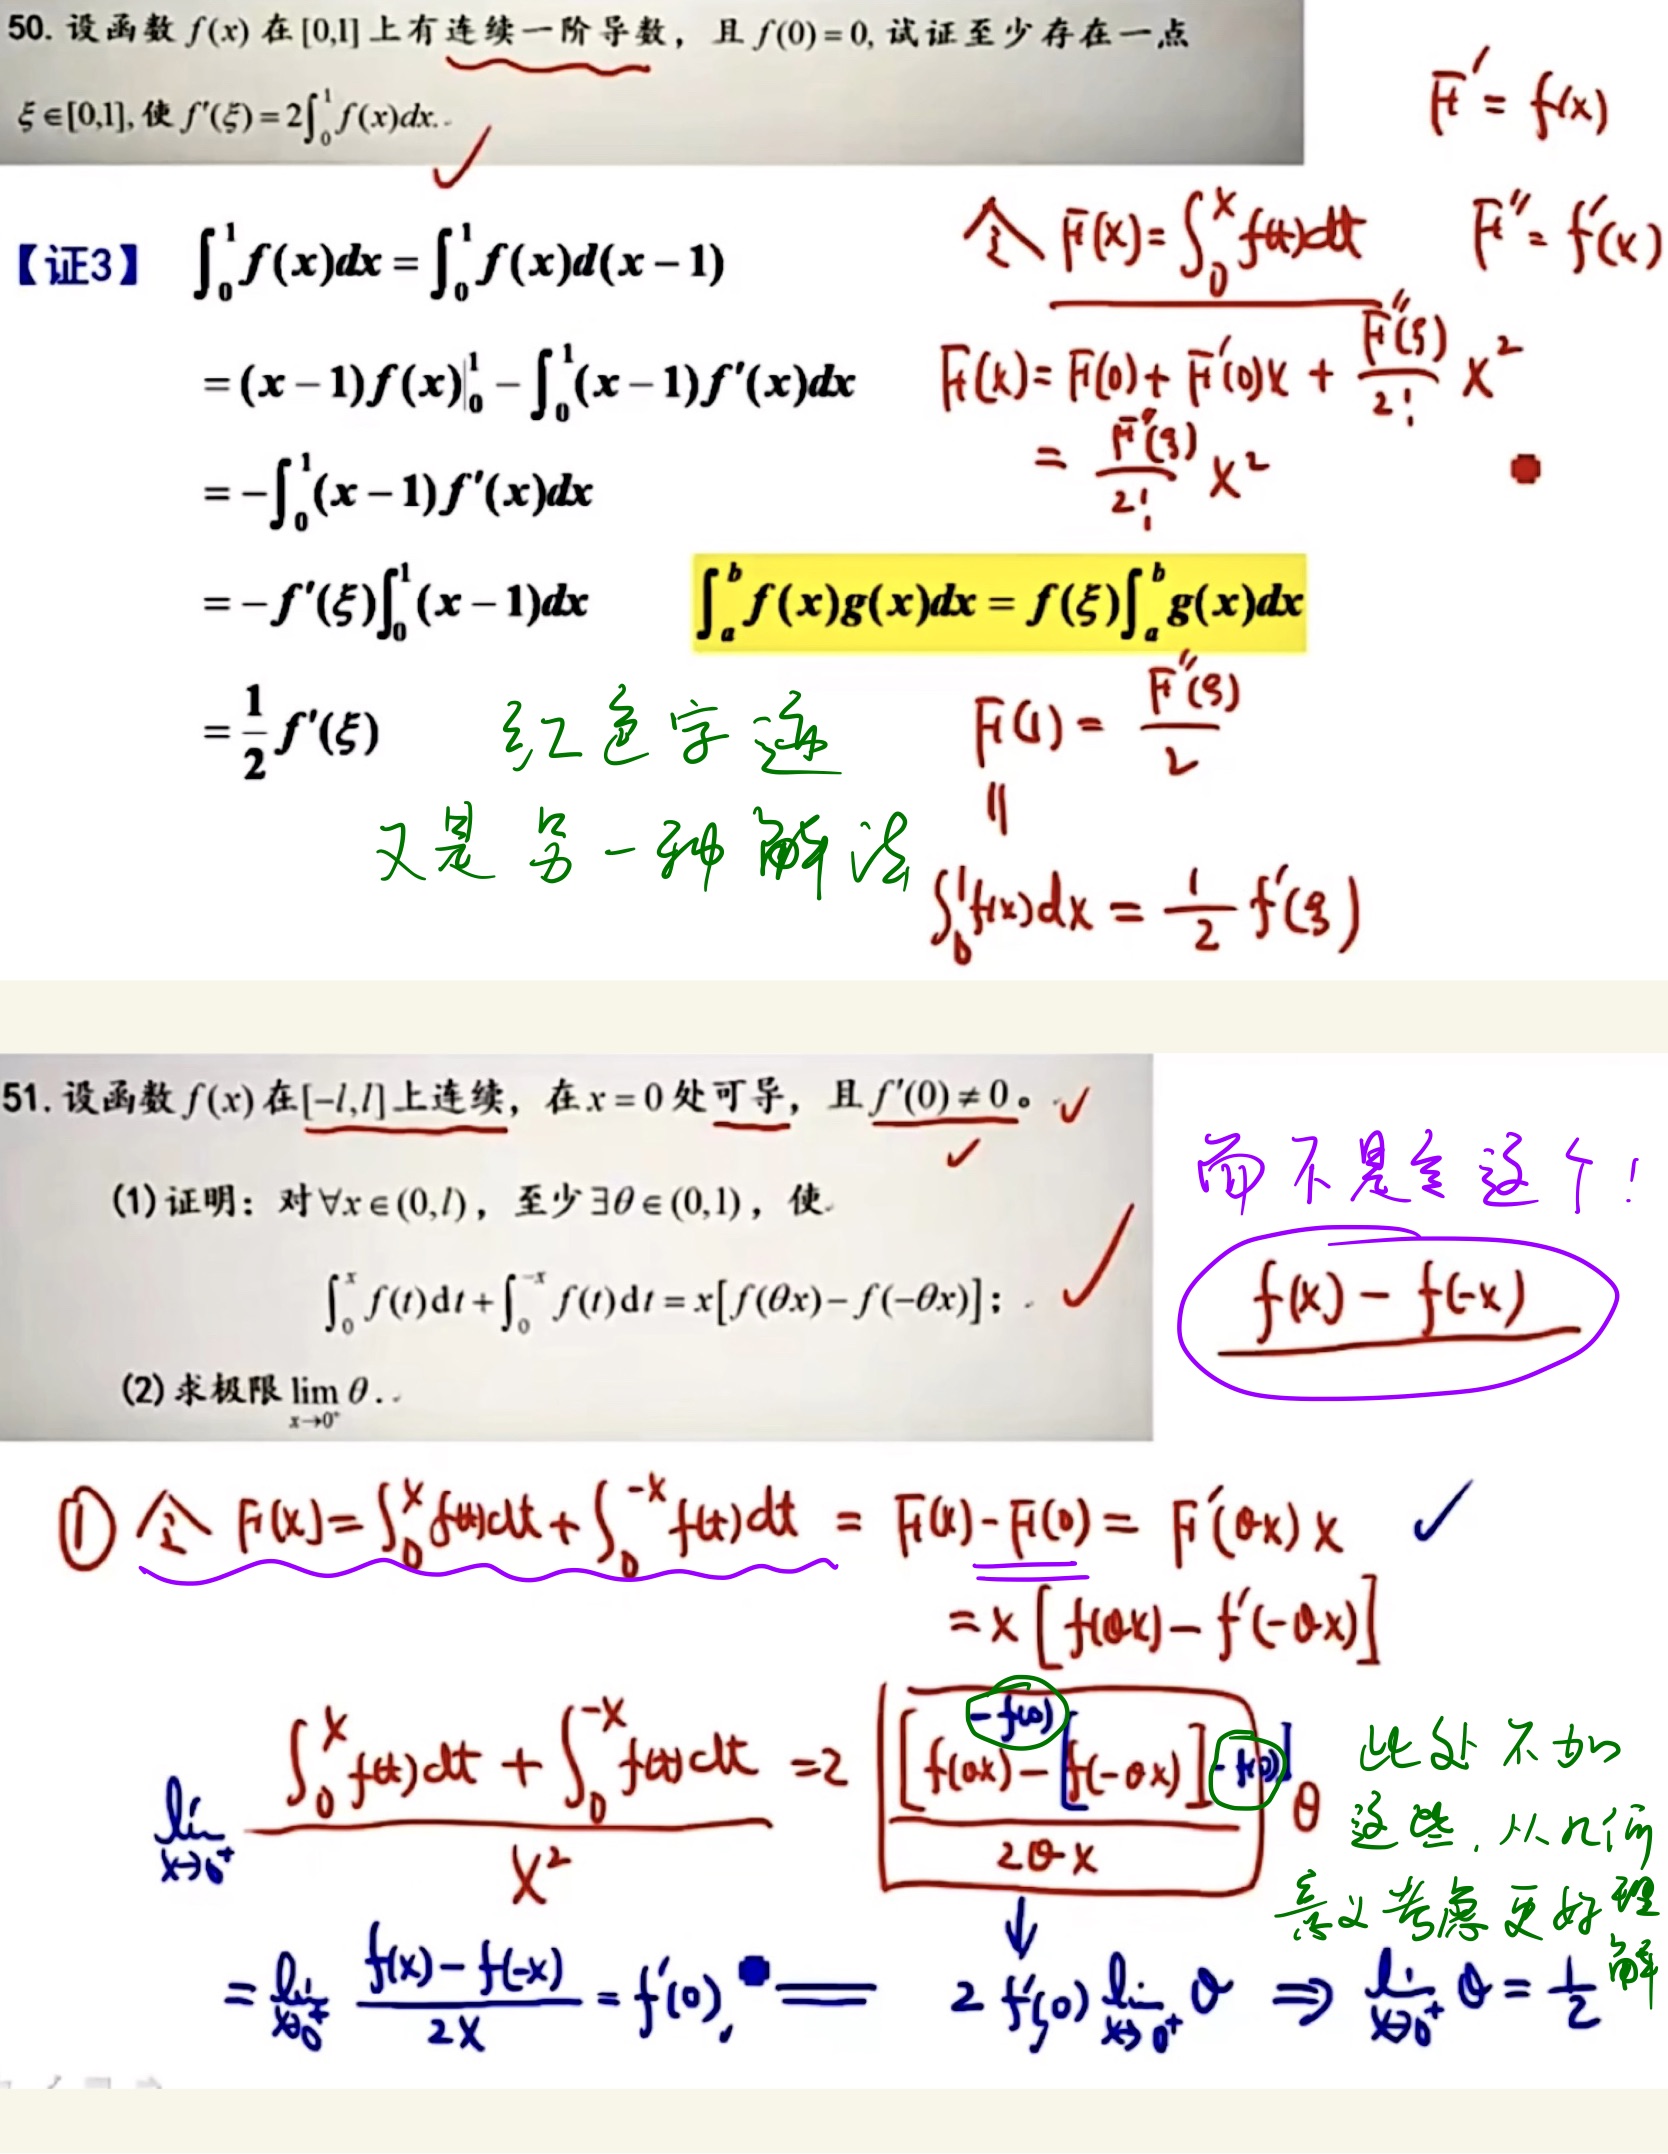 50. 设函数 f(x) 在 [0,1] 上有连续一阶导数，且 f(0) = 0, 试证至少存在一点
ξ∈[0,1], 使 f′(ξ) = 2∫₀¹ f(x)dx.
F′ = f(x)
F″ = f′(x)
【证3】 ∫₀¹ f(x)dx = ∫₀¹ f(x)d(x−1)
= (x−1)f(x)|₀¹ − ∫₀¹ (x−1)f′(x)dx
= −∫₀¹ (x−1)f′(x)dx
= −f′(ξ)∫₀¹ (x−1)dx
∫ₐᵇ f(x)g(x)dx = f(ξ)∫ₐᵇ g(x)dx
= 1/2 f′(ξ)
令 F(x) = ∫₀ˣ f(t)dt
F(x) = F(0) + F′(0)x + F″(ξ)/2! x²
= F″(ξ)/2! x²
F(1) = F″(ξ)/2
||
∫₀¹ f(x)dx = 1/2 f′(ξ)
红色字迹
又是另一种解法
51. 设函数 f(x) 在[−l,l]上连续，在 x = 0 处可导，且 f′(0) ≠ 0。
(1) 证明：对∀x∈(0,l)，至少∃θ∈(0,1)，使
∫₀ˣ f(t)dt + ∫₀⁻ˣ f(t)dt = x[f(θx) − f(−θx)]；
(2) 求极限 lim_{x→0⁺} θ.
而不是令这个！
f(x) − f(−x)
① 令 F(x) = ∫₀ˣ f(t)dt + ∫₀⁻ˣ f(t)dt = F(x) − F(0) = F′(θx)x
= x[f(θx) − f′(−θx)]
lim_{x→0⁺} (∫₀ˣ f(t)dt + ∫₀⁻ˣ f(t)dt)/x² = 2 [f(θx) −f(0) − [f(−θx)] − f(0)]/(2θx) θ
此处不加
这些，从几何
意义考虑更好理
解
= lim_{x→0⁺} (f(x) − f(−x))/2x = f′(0), = 2f′(0) lim_{x→0⁺} θ ⇒ lim_{x→0⁺} θ = 1/2